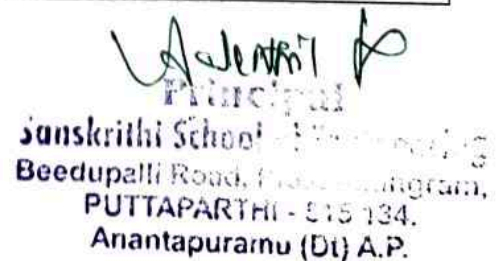 Principal
Sanskrithi School of Engineering
Beedupalli Road,
PUTTAPARTHI - 515 134.
Anantapuramu (Dt) A.P.